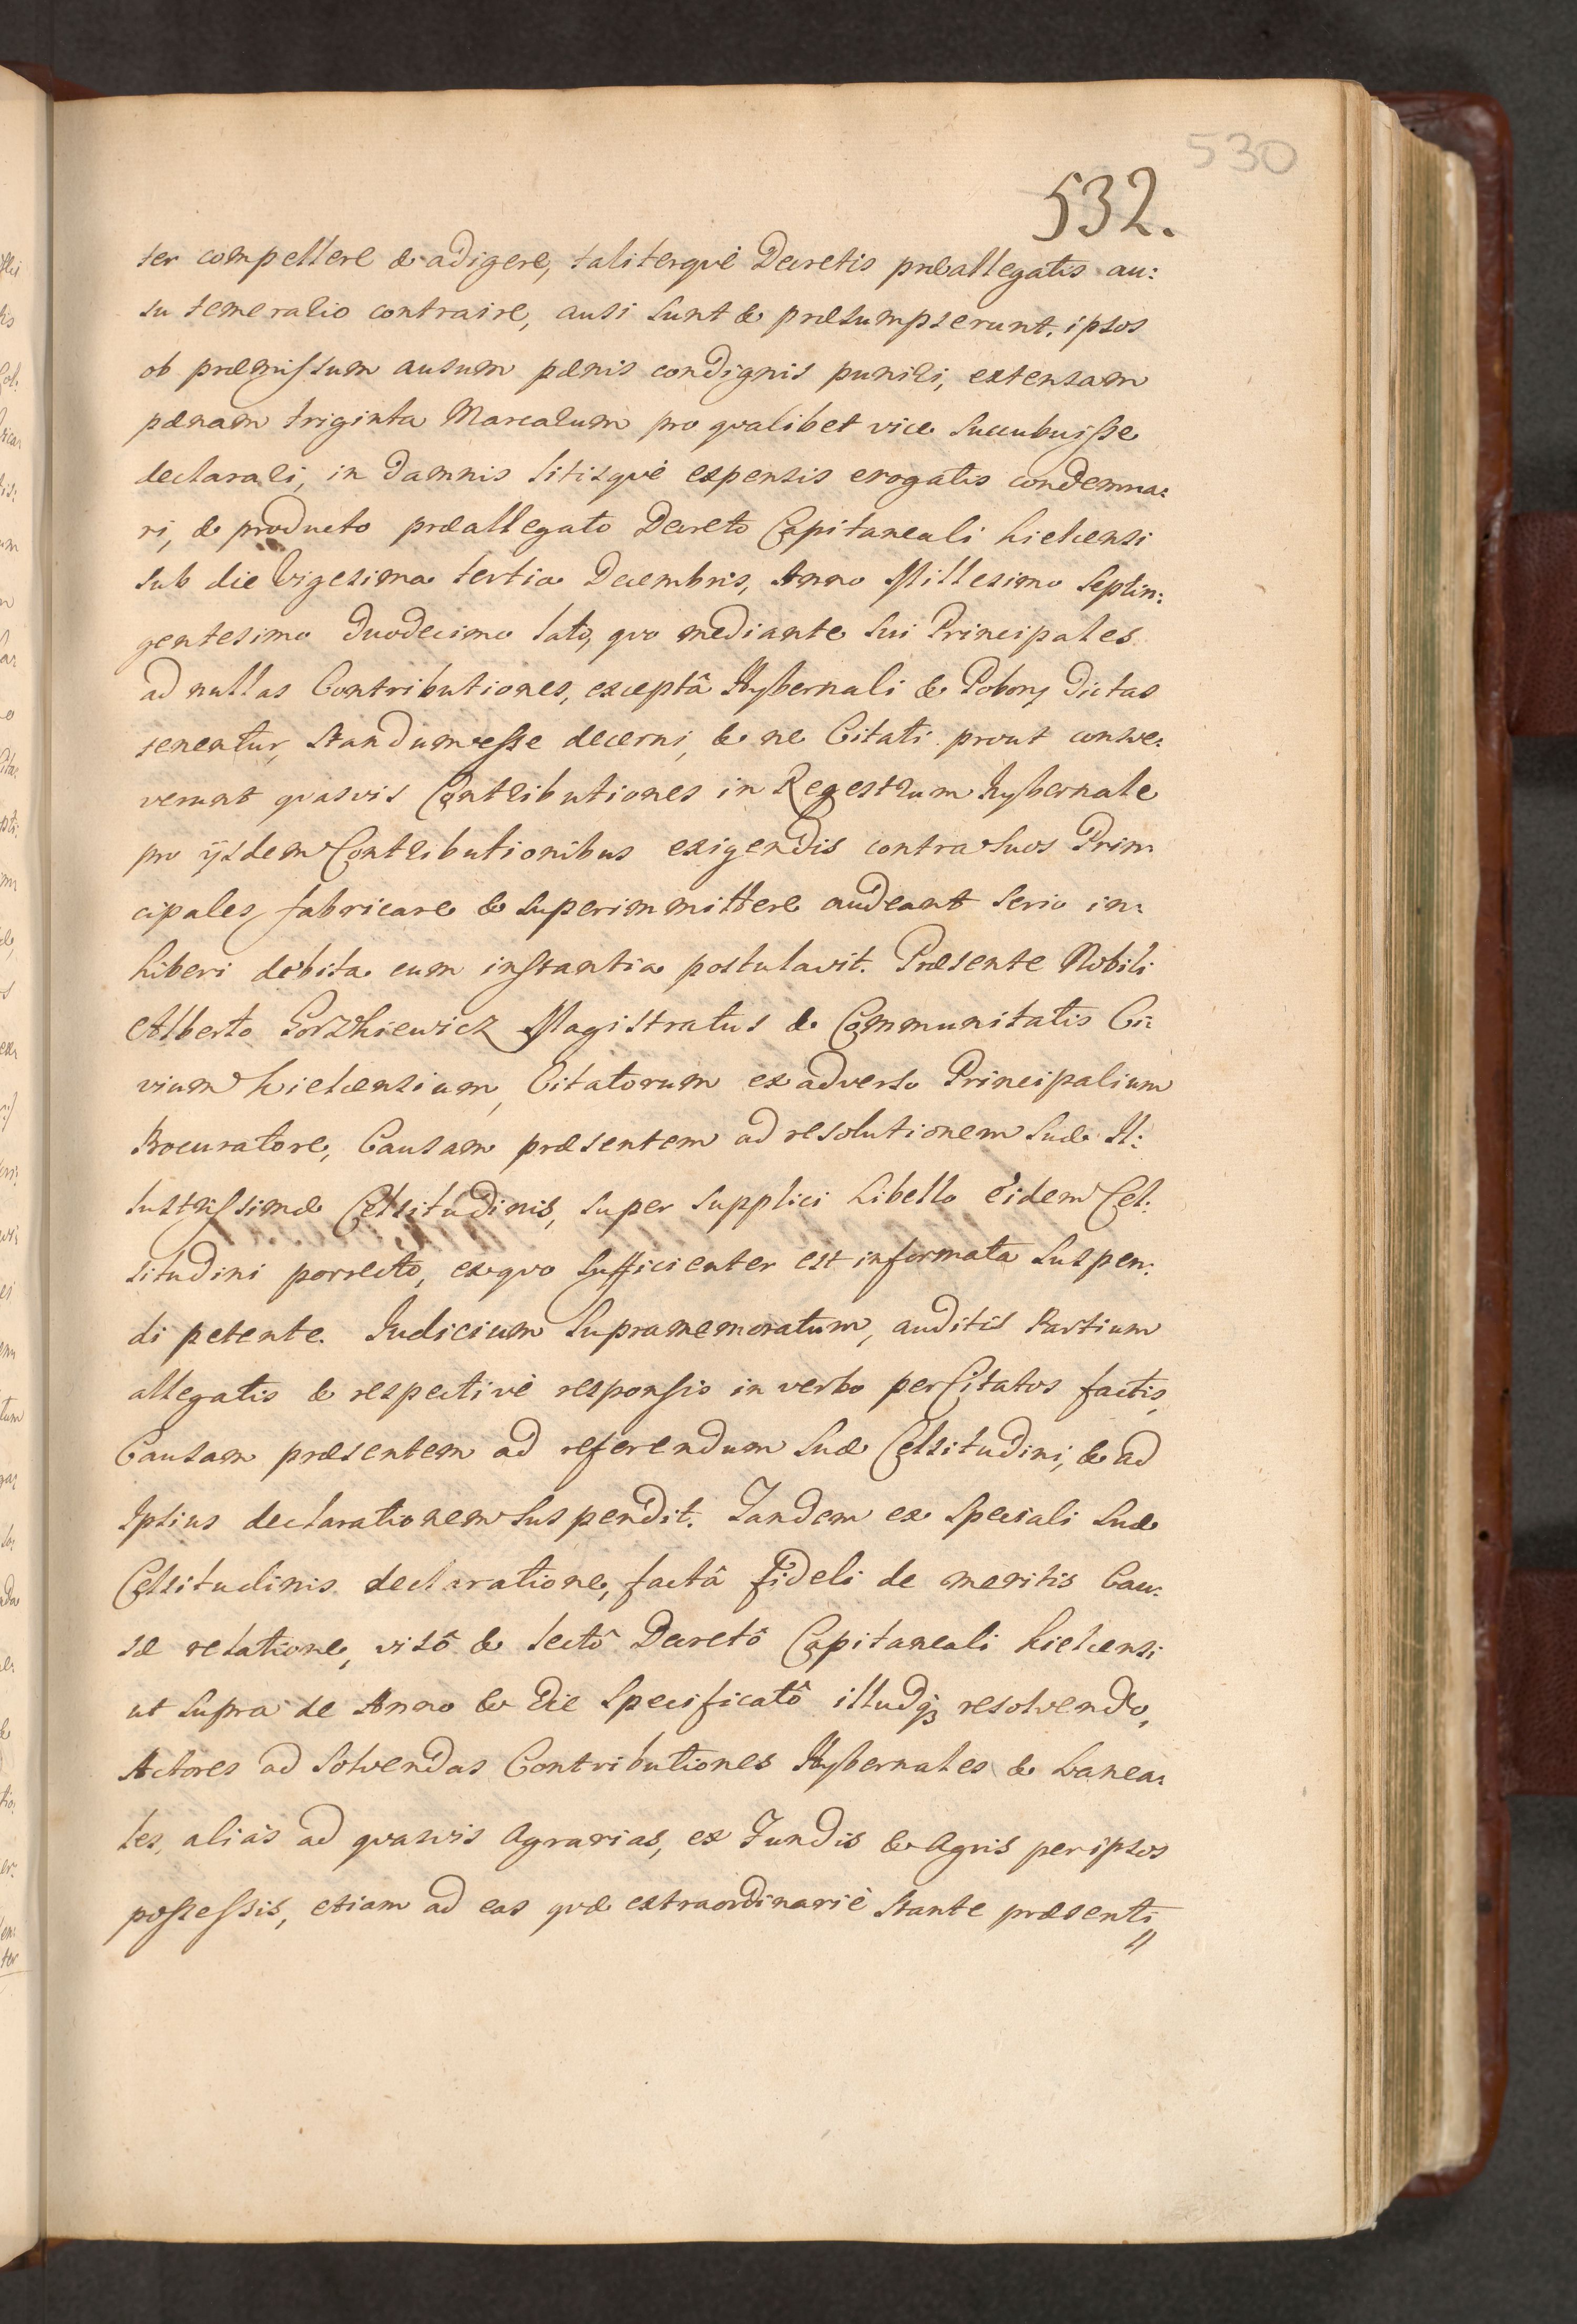 530
532.
ter compellere & adigere, taliterqvè Decretis præallegatis au:
su temerario contraire, ausi sunt & præsumpserunt, ipsos
ob præmissum ausum pænis condignis puniri, extensam
pænam triginta Marcarum pro qvalibet vice succubuisse
declarari, in damnis litisqvè expensis erogatis condemna:
ri, & producto præallegato Decreto Capitaneali Kielcensi
sub die Vigesima tertia Decembris, Anno Millesimo Septin:
gentesimo duodecimo lato, qvo mediante sui Principales
ad nullas Contributiones, exceptâ Hybernali & Pobory dictas
teneatur, standum esse decerni, & ne Citati prout consve:
verunt qvasvis Contributiones in Regestrum Hybernale
pro ijsdem Contributionibus exigendis contra suos Prin:
cipales, fabricare & superimmittere audeant serio in:
hiberi debita cum instantia postulavit. Præsente Nobili
Alberto Gorzkiewicz Magistratus & Communitatis Ci:
vium Kielcensium, Citatorum ex adverso Principalium
Procuratore, Causam præsentem ad resolutionem Suæ Il:
lustrissimæ Celsitudinis, super supplici libello eidem Cel:
situdini porrecto, ex qvo sufficienter est informata suspen:
di petente. Judicium supramemoratum, auditis Partium
allegatis & respectivè responsio in verbo per Citatos factis,
Causam præsentem ad referendum Suæ Celsitudini, & ad
Ipsius declarationem suspendit. Tandem ex speciali Suæ
Celsitudinis declaratione, factâ fideli de meritis Cau:
sæ relatione, visô & lectô Decretô Capitaneali Kielcensi
ut supra de Anno & Die specificatô illudq3 resolvendo,
Actores ad solvendas Contributiones Hybernales & Lanea:
les, aliàs ad qvasvis Agrarias, ex Fundis & Agris per ipsos
possessis, etiam ad eas qvæ extraordinariè stante præsenti